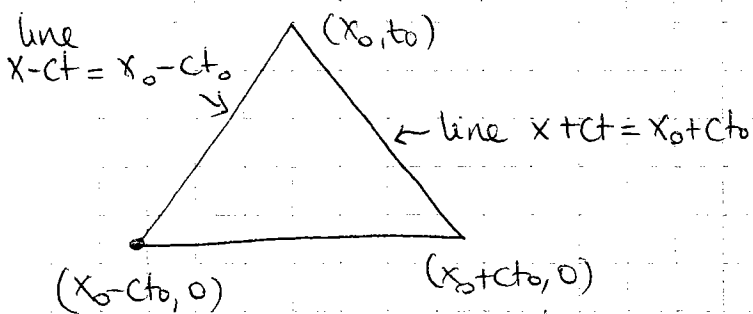 line
x-ct = x₀-ct₀
(x₀, t₀)
← line x+ct = x₀+ct₀
(x₀-ct₀, 0)
(x₀+ct₀, 0)